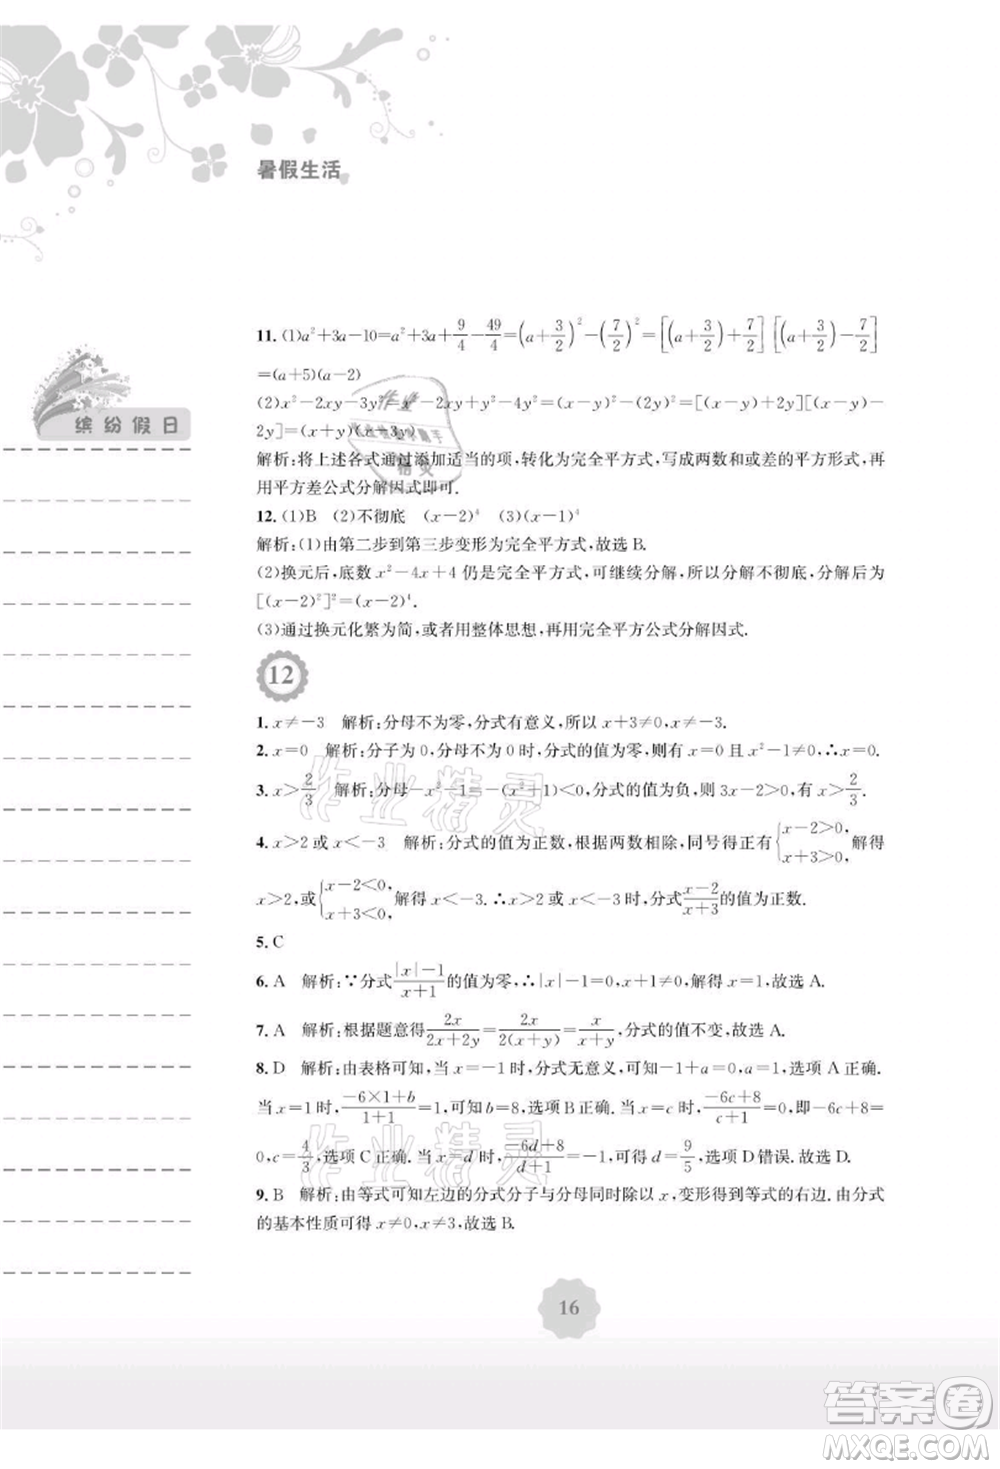 暑假生活
缤纷假日
11. (1)a²+3a−10=a²+3a+9/4−49/4=(a+3/2)²−(7/2)²=[(a+3/2)+7/2][(a+3/2)−7/2]
=(a+5)(a−2)
(2)x²−2xy−3y²=x²−2xy+y²−4y²=(x−y)²−(2y)²=[(x−y)+2y][(x−y)−
2y]=(x+y)(x−3y)
解析:将上述各式通过添加适当的项,转化为完全平方式,写成两数和或差的平方形式,再
用平方差公式分解因式即可.
12. (1)B (2)不彻底 (x−2)⁴ (3)(x−1)⁴
解析:(1)由第二步到第三步变形为完全平方式,故选B.
(2)换元后,底数x²−4x+4仍是完全平方式,可继续分解,所以分解不彻底,分解后应为
[(x−2)²]²=(x−2)⁴.
(3)通过换元化繁为简,或者用整体思想,再用完全平方公式分解因式.
12
1. x≠−3 解析:分母不为零,分式有意义,所以x+3≠0,x≠−3.
2. x=0 解析:分子为0,分母不为0时,分式的值为零,则有x=0且x²−1≠0,∴x=0.
3. x>2/3 解析:分母−x²−1=−(x²+1)<0,分式的值为负,则3x−2>0,有x>2/3.
4. x>2或x<−3 解析:分式的值为正数,根据两数相除,同号得正有{x−2>0,x+3>0,解得
x>2,或{x−2<0,x+3<0,解得x<−3.∴x>2或x<−3时,分式(x−2)/(x+3)的值为正数.
5. C
6. A 解析:∵分式(|x|−1)/(x+1)的值为零,∴|x|−1=0,解得x=1,故选A.
7. A 解析:根据题意得2x/(2x+2y)=2x/2(x+y)=x/(x+y),分式的值不变,故选A.
8. D 解析:由表格可知,当x=−1时,分式无意义,可知−1+a=0,a=1,选项A正确.
当x=1时,(−6×1+b)/(1+1)=1,可知b=8,选项B正确.当x=c时,(−6c+8)/(c+1)=0,即−6c+8=
0,c=4/3,选项C正确.当x=d时,(−6d+8)/(d+1)=−1,可知d=9/5,选项D错误.故选D.
9. B 解析:由等式可知左边的分式分子与分母同时除以x,变形得到等式的右边.由分式
的基本性质可得x≠0,x≠3,故选B.
作业精灵
作业精灵
16
答案圈
MXQE.COM